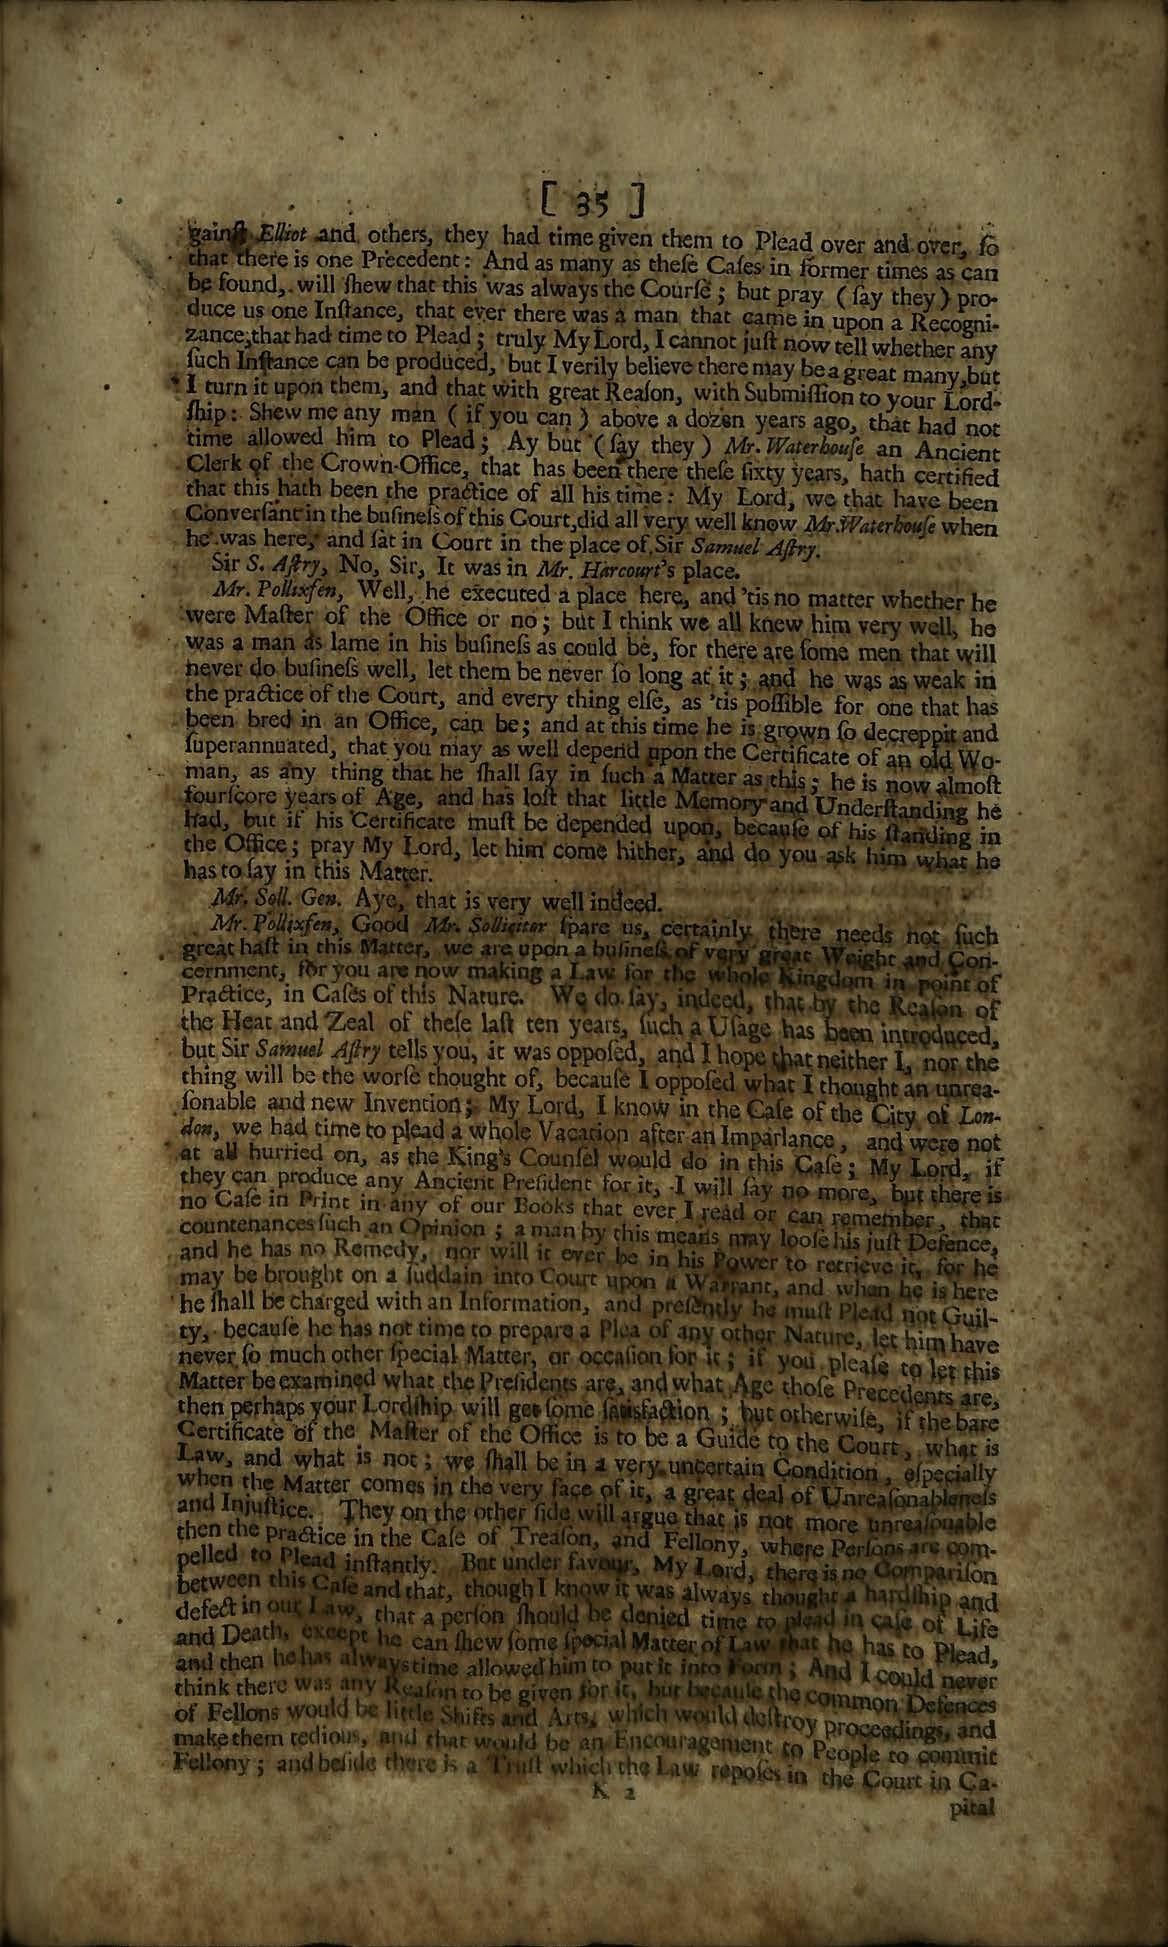 [ 35 ]
gainſt Elliot and others, they had time given them to Plead over and over, ſo
that there is one Precedent: And as many as theſe Caſes in former times as can
be found, will ſhew that this was always the Courſe; but pray (ſay they) pro-
duce us one Inſtance, that ever there was a man that came in upon a Recogni-
zance, that had time to Plead; truly My Lord, I cannot juſt now tell whether any
ſuch Inſtance can be produced, but I verily believe there may be a great many, but
I turn it upon them, and that with great Reaſon, with Submiſſion to your Lord-
ſhip: Shew me any man (if you can) above a dozen years ago, that had not
time allowed him to Plead; Ay but (ſay they) Mr. Waterhouſe an Ancient
Clerk of the Crown-Office, that has been there theſe ſixty years, hath certified
that this hath been the practice of all his time: My Lord, we that have been
Converſant in the buſineſs of this Court, did all very well know Mr. Waterhouſe when
he was here, and ſat in Court in the place of Sir Samuel Aſtry.
Sir S. Aſtry, No, Sir, It was in Mr. Harcourt's place.
Mr. Pollixfen, Well, he executed a place here, and 'tis no matter whether he
were Maſter of the Office or no; but I think we all knew him very well, he
was a man as lame in his buſineſs as could be, for there are ſome men that will
never do buſineſs well, let them be never ſo long at it; and he was as weak in
the practice of the Court, and every thing elſe, as 'tis poſſible for one that has
been bred in an Office, can be; and at this time he is grown ſo decreppit and
ſuperannuated, that you may as well depend upon the Certificate of an old Wo-
man, as any thing that he ſhall ſay in ſuch a Matter as this; he is now almoſt
fourſcore years of Age, and has loſt that little Memory and Underſtanding he
had, but if his Certificate muſt be depended upon, becauſe of his ſtanding in
the Office; pray My Lord, let him come hither, and do you ask him what he
has to ſay in this Matter.
Mr. Soll. Gen. Aye, that is very well indeed.
Mr. Pollixfen, Good Mr. Solliciter ſpare us, certainly there needs not ſuch
great haſt in this Matter, we are upon a buſineſs of very great Weight and Con-
cernment, for you are now making a Law for the whole Kingdom in point of
Practice, in Caſes of this Nature. We do ſay, indeed, that by the Reaſon of
the Heat and Zeal of theſe laſt ten years, ſuch a Uſage has been introduced,
but Sir Samuel Aſtry tells you, it was oppoſed, and I hope that neither I, nor the
thing will be the worſe thought of, becauſe I oppoſed what I thought an unrea-
ſonable and new Invention; My Lord, I know in the Caſe of the City of Lon-
don, we had time to plead a whole Vacation after an Imparlance, and were not
at all hurried on, as the King's Counſel would do in this Caſe; My Lord, if
they can produce any Ancient Preſident for it, I will ſay no more, but there is
no Caſe in Print in any of our Books that ever I read or can remember, that
countenances ſuch an Opinion; a man by this means may looſe his juſt Defence,
and he has no Remedy, nor will it ever be in his Power to retrieve it, for he
may be brought on a ſuddain into Court upon a Warrant, and when he is here
he ſhall be charged with an Information, and preſently he muſt Plead not Guil-
ty, becauſe he has not time to prepare a Plea of any other Nature, let him have
never ſo much other ſpecial Matter, or occaſion for it; if you pleaſe to let this
Matter be examined what the Preſidents are, and what Age thoſe Precedents are,
then perhaps your Lordſhip will get ſome ſatisfaction; but otherwiſe, if the bare
Certificate of the Maſter of the Office is to be a Guide to the Court, what is
Law, and what is not; we ſhall be in a very uncertain Condition, eſpecially
when the Matter comes in the very face of it, a great deal of Unreaſonableneſs
and Injuſtice. They on the other ſide will argue that is not more unreaſonable
then the practice in the Caſe of Treaſon, and Fellony, where Perſons are com-
pelled to Plead inſtantly. But under favour, My Lord, there is no Compariſon
between this Caſe and that, though I know it was always thought a hardſhip and
defect in our Law, that a perſon ſhould be denied time to plead in caſe of Life
and Death, except he can ſhew ſome ſpecial Matter of Law that he has to Plead,
and then he has always time allowed him to put it into Form; And I could never
think there was any Reaſon to be given for it, but becauſe the common Defences
of Fellons would be little Shifts and Arts, which would deſtroy proceedings, and
make them tedious, and that would be an Encouragement to People to commit
Fellony; and beſide there is a Truſt which the Law repoſes in the Court in Ca-
K 2
pital